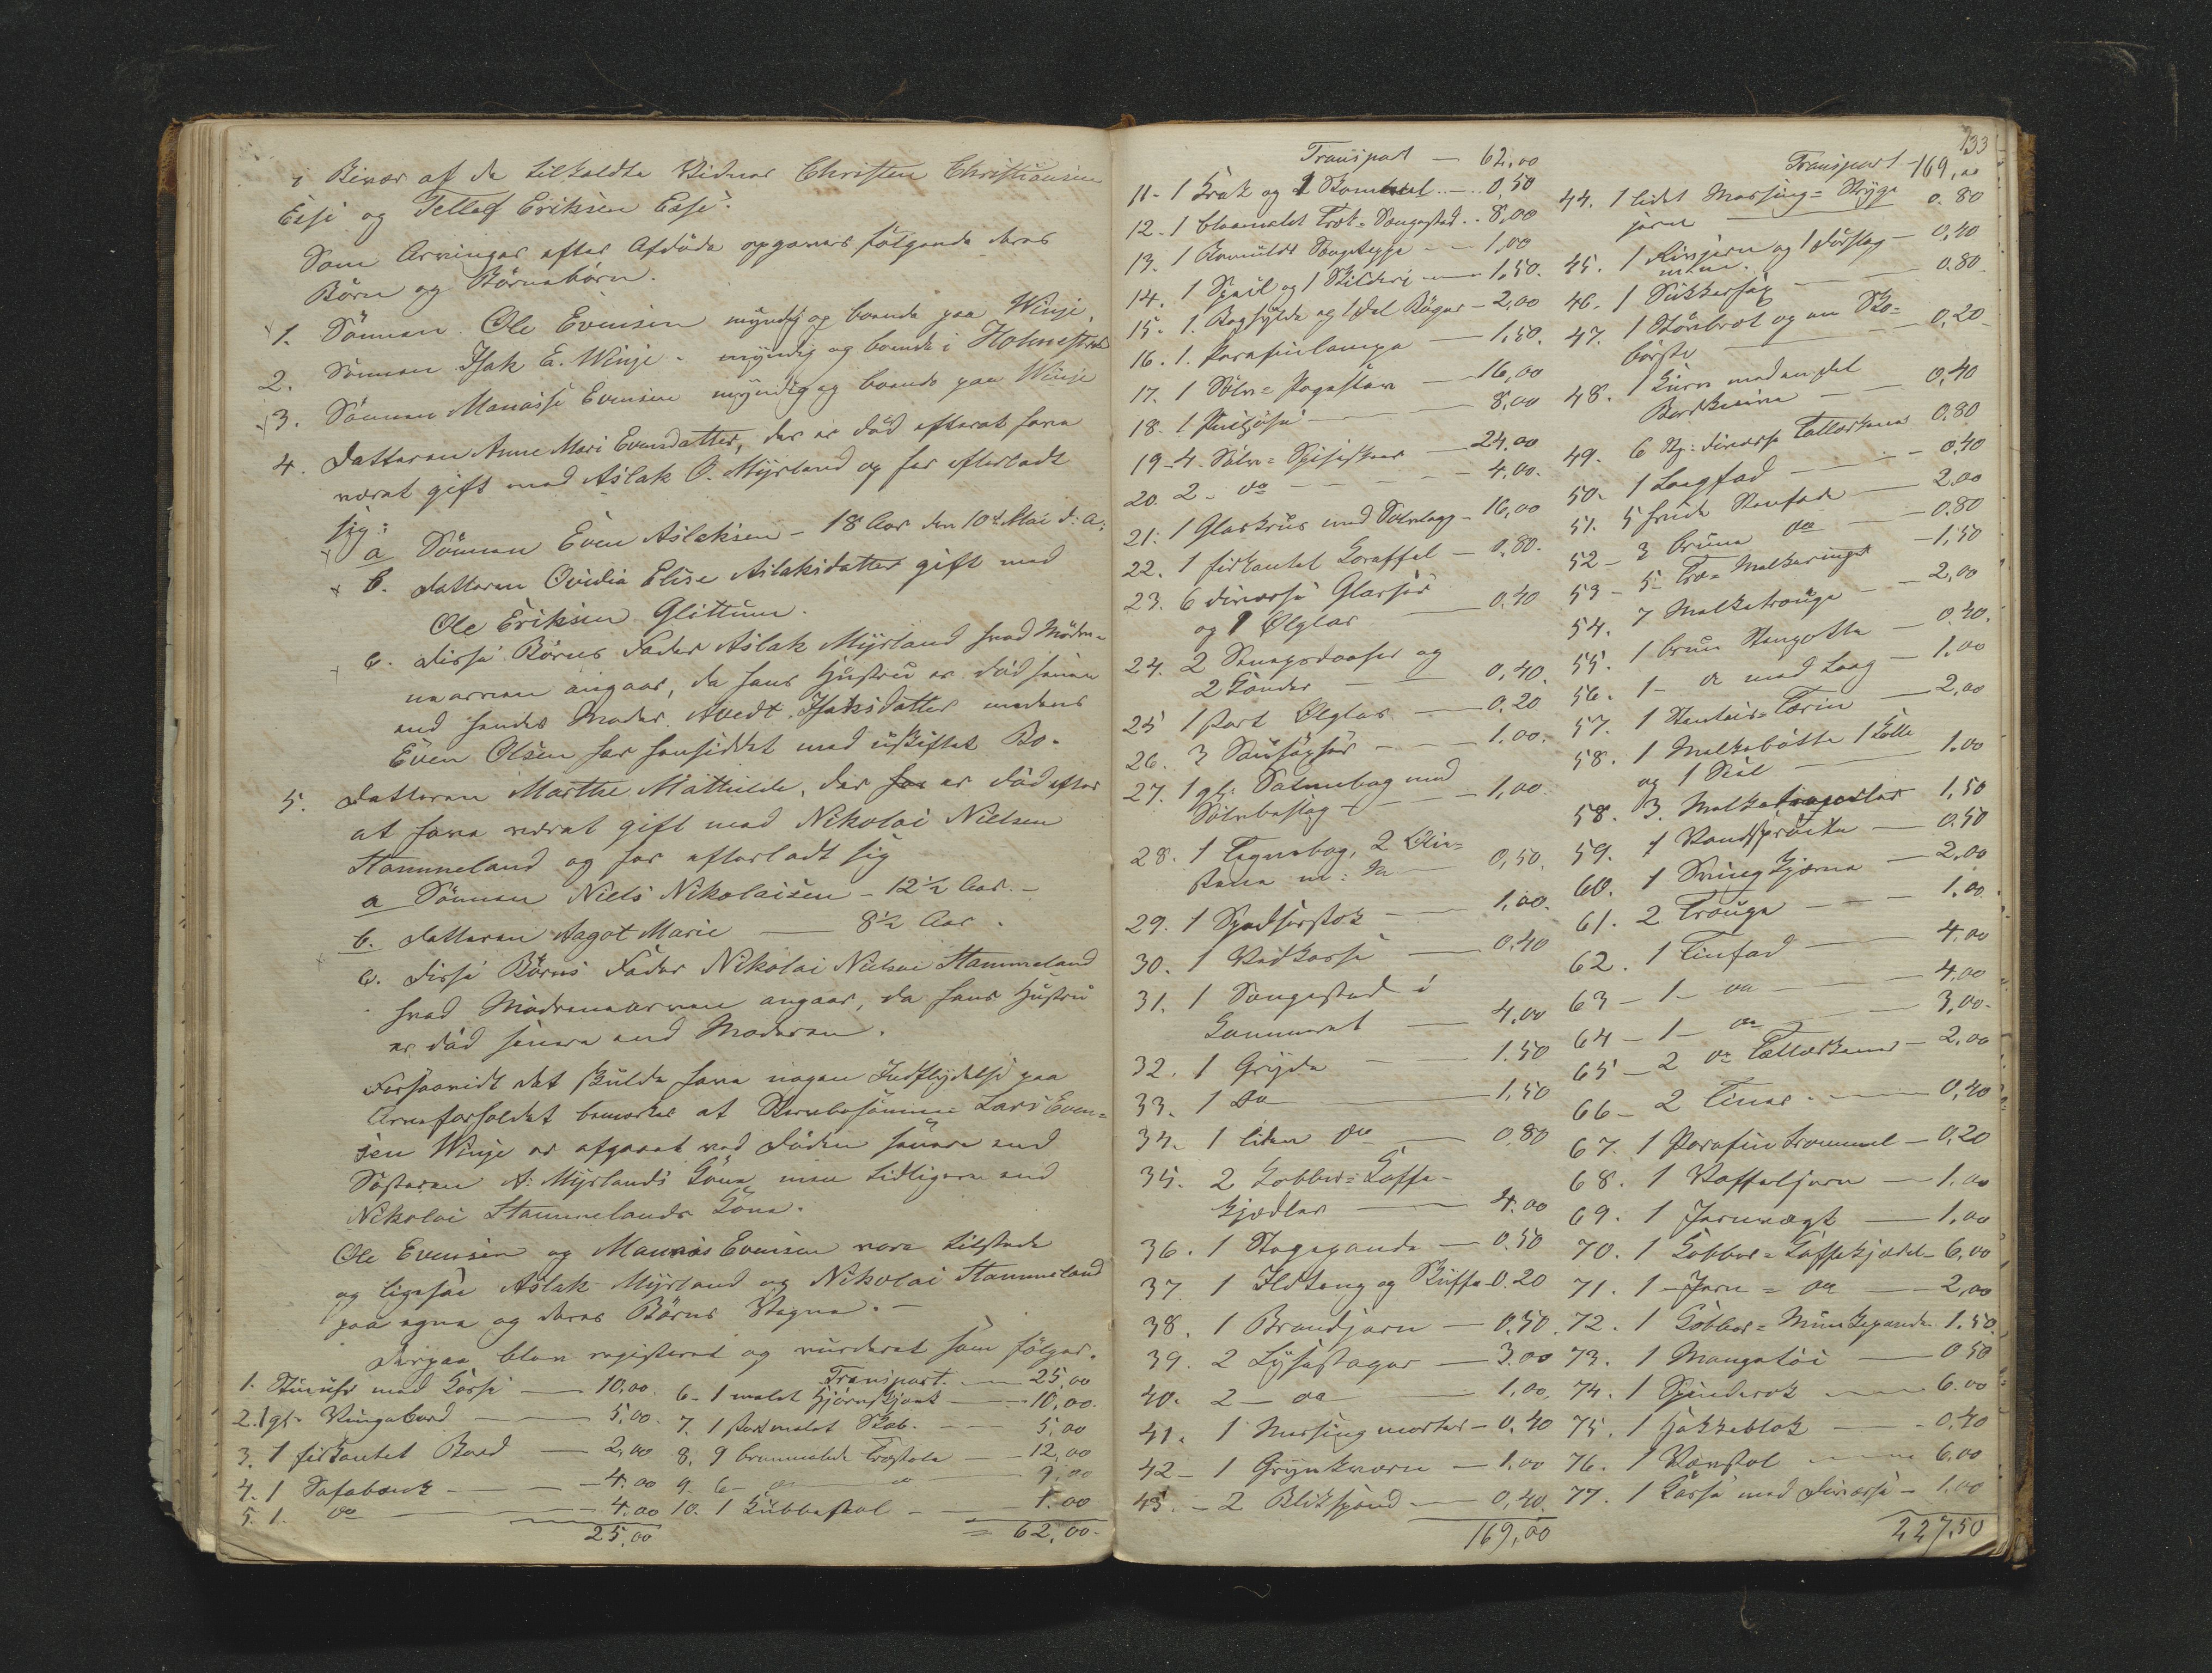 i Bivær af de tilkaldte Vidner Christen Christiansen
Essè og Tellef Eriksen Essè.
Som Arvinger efter Afdøde opgaves følgende deres
Børn og Børnebørn.
1. Sønnen Ole Evensen myndig og boende paa Winje,
2. Sønnen Isak E. Winje - myndig og boende i Holmestrand
3. Sønnen Manasse Evensen myndig og boende paa Winje
4. Datteren Anne Mari Evensdatter, der er død efterat have
været gift med Aslak O. Myrland og har efterladt
sig:
a Sønnen Even Aslaksen - 18 Aar den 10de Mai d: A:
b. Datteren Ovidia Elise Aslaksdatter gift med
Ole Eriksen Glittum.
c. Disse Børns Fader Aslak Myrland hvad Mødre-
nearven angaar, da hans Hustru er død senere
end hendes Moder. Medens
Even Olsen har hensiddet med uskiftet Bo.
5. Datteren Marthe Mathilde, der har er død efter
at have været gift med Nikolai Nielsen
Stammeland og har efterladt sig
a Sønnen Niels Nikolaisen - 12½ Aar. -
b. Datteren Aagot Marie — 8½ Aar.
c. Disse Børns Fader Nikolai Nielsen Stammeland
hvad Mødrenearven angaar, da hans Hustru
er død senere end Moderen.
Forsaavidt det skulde have nogen Indflydelse paa
Arveforholdet bemærkes at Lars Even=
sen Winje er afgaaet ved Døden senere end
Søsteren A: Myrlands Kone, men tidligere end
Nikolai Stammelands Kone.
Ole Evensen og Manasse Evensen vare tilstede
og ligesaa Aslak Myrland og Nikolai Stammeland
paa egne og deres Børns Vegne. -
Derpaa blev registeret og vurderet som følger.
1. Stueuhr med Kasse — 10,00.
2. 1 gl. Vingebord — 5,00.
3. 1 firkantet Bord — 2,00
4. 1 Sofabænk — 4.00
5. 1. do — 4.00
25,00
Transport. — 25,00
6 - 1 malet Hjørneskjænk — 10,00.
7. 1 malet Skab. — 5,00
8. 9 brunmalede Træstole — 12,00
9. 6 - do do — 9,00
10. 1 Kubbestol — 1.00
= 62,00.
133
Transport — 62,00
11 - 1 Krak og 1 — 0,50
12 - 1 blaamalet Træ-Sengested - 8,00
13. 1 Sengeteppe — 1,00
14. 1 Speil og 1 Skilderi — 1,50.
15. 1. Boghylde og 1 Del Bøger - 2,00
16. 1. Parafinlampe — 1,50.
17. 1 Sølv= Pogestøv — 16,00
18. 1 — 8,00
19 - 4 Sølv= Spiseskeer — 24.00
20. 2 - do — 4,00.
21. 1 Glaskrus med Sølvlaag - 16,00
22. 1 firkantet Karaffel — 0,80.
23. 6 diverse Glasser
og 1 Ølglas — 0,40
24. 2 Senepsdaaser og
2 Kander — 0,40.
25 1 stort Ølglas. — 0.20
26. 3 — 1.00.
27. 1 gl. Salmebog med
Sølvbeslag — 1,00.
28. 1 Tegnebog, 2
m: m — 0,50.
29. 1 Spadserstok — 1,00.
30. 1 Vedkasse — 0.40
31. 1 Sengested i
Kammeret — 4,00
32. 1 Gryde — 1.50
33. 1 Do — 1,50
34. 1 liden do — 0.80
35. 2 Kobber=Kaffe-
Kjedler — 4.00
36. 1 Stegepande — 0.50
37 1 Ildtang og Skuffe 0.20
38. 1 Brandjern — 0,50.
39. 2 Lysestager — 3.00
40. 2 — do — 1,00.
41. 1 Messing morter — 0,40
42 - 1 Grynkværn — 1,00
43. - 2 Blikspand — 0,40.
169,00
Transport — 169,00
44. 1 lidet Messing= Stryge
jern — 0.80
45. 1 Rivjern og 1 Dørslag
m.m. — 0,40
46. 1 Sukkersax — 0.80
47. 1 og en Sko=
børste — 0,20
48. 1 Kurv med en Del
Bordknive — 0,40
49. 6 St: diverse Tallerkener 0,80
50. 1 Langfad — 0,40
51. 5 hvide Stenfade — 2,00
52 - 3 brune do — 0,80
53 - 5 Træ= Melkeringer — 1,50
54. 7 Melketrauge — 2,00
55. 1 brun Stenpotte — 0.40.
56. 1 - do med Laag — 1.00
57. 1 Stentøis= Terrin — 2,00
58. 1 Melkebøtte 1 Kolle
og 1 Sil — 1.00
58. 3. — 1,50
59. 1 — 0.50
60. 1 Svingkjærne — 2.00
61. 2 Trauge — 1.00
62. 1 Tinfad — 4.00
63 - 1 - do — 4.00
64 - 1 - do — 3,00.
65 - 2 do Tallerkener — 2,00
66 - 2 Tiner. — 0,40
67. 1 Parafin trommel — 0,20
68. 1 Vaffeljern — 1.00
69. 1 Jernvægt — 1,00
70. 1 Kobber= Kaffekjedel 6,00
71. 1 Jern = do — 2,00
72. 1 Kobber= Munkepande 1.50
73. 1 Mangetøi — 0 50
74. 1 Spinderok — 6.00
75. 1 Hakkeblok — 0,40
76. 1 Vævstol — 6,00
77. 1 Kasse med Diverse - 1.00
227,50